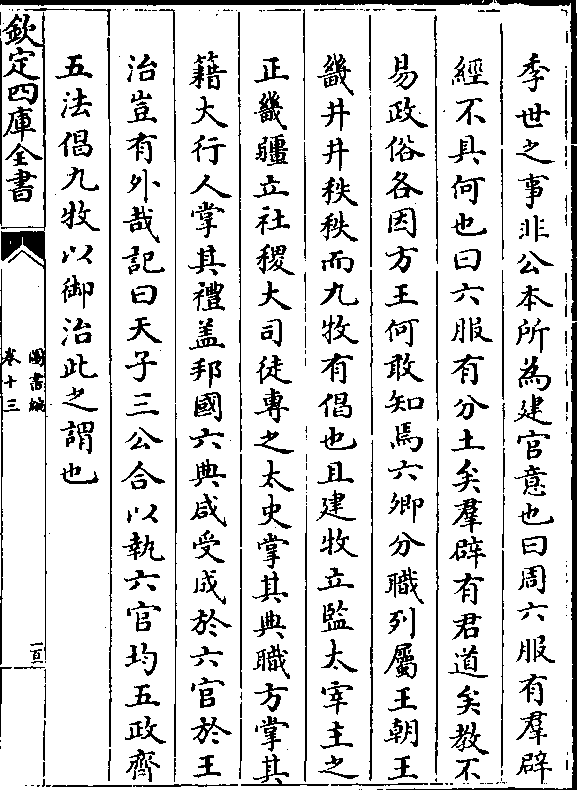 季世之事非公本所為建官意也曰周六服有羣辟
經不具何也曰六服有分土矣羣辟有君道矣教不
易政俗各因方王何敢知焉六卿分職列屬王朝王
畿井井秩秩而九牧有倡也且建牧立監太宰主之
正畿疆立社稷大司徒專之太史掌其典職方掌其
籍大行人掌其禮盖邦國六典咸受成於六官於王
治豈有外哉記曰天子三公合以執六官均五政齊
五法倡九牧以御治此之謂也
欽定四庫全書
圖書編
卷十三
一百